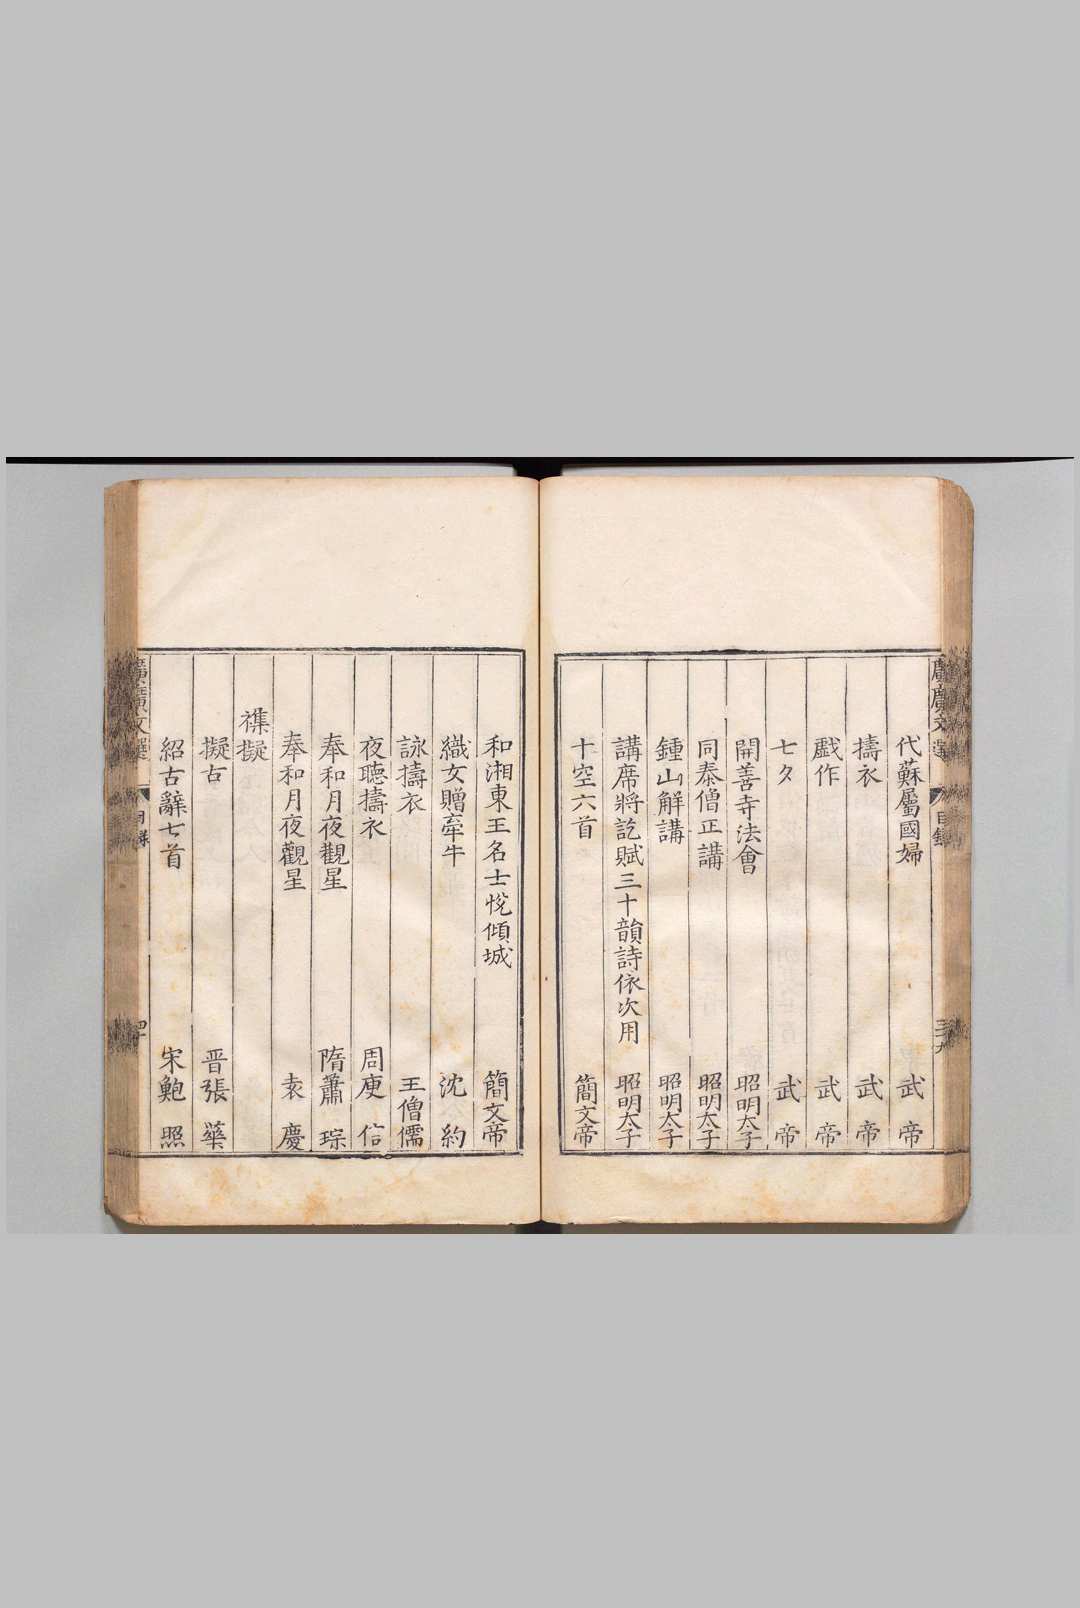 廣廣文選
目錄
三十九
代蘇屬國婦 武帝
擣衣 武帝
戲作 武帝
七夕 武帝
開善寺法會 昭明太子
同泰僧正講 昭明太子
鍾山解講 昭明太子
講席將訖賦三十韻詩依次用 昭明太子
十空六首 簡文帝
和湘東王名士悅傾城 簡文帝
織女贈牽牛 沈約
詠擣衣 王僧儒
夜聽擣衣 周庾信
奉和月夜觀星 隋蕭琮
奉和月夜觀星 袁慶
襍擬
擬古 晋張華
紹古辭七首 宋鮑照
廣廣文選
目錄
四十